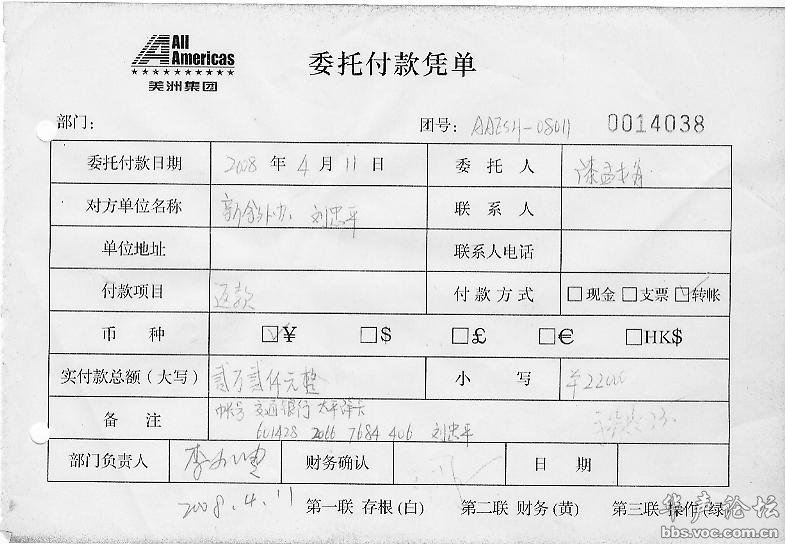 All
Americas
美洲集团
委托付款凭单
部门：
团号： 0014038
委托付款日期 2008 年 4 月 11 日 委托人
对方单位名称 刘忠平 联系人
单位地址 联系人电话
付款项目 返款 付款方式 □现金 □支票 □转帐
币种 □¥ □$ □£ □€ □HK$
实付款总额（大写） 贰万贰仟元整 小写 ¥22000
备注 帐号 交通银行 太平洋卡
601428 2066 7684 406 刘忠平
部门负责人 财务确认 日期
2008.4.11 第一联 存根(白) 第二联 财务(黄) 第三联 操作(绿)
华声论坛
bbs.voc.com.cn